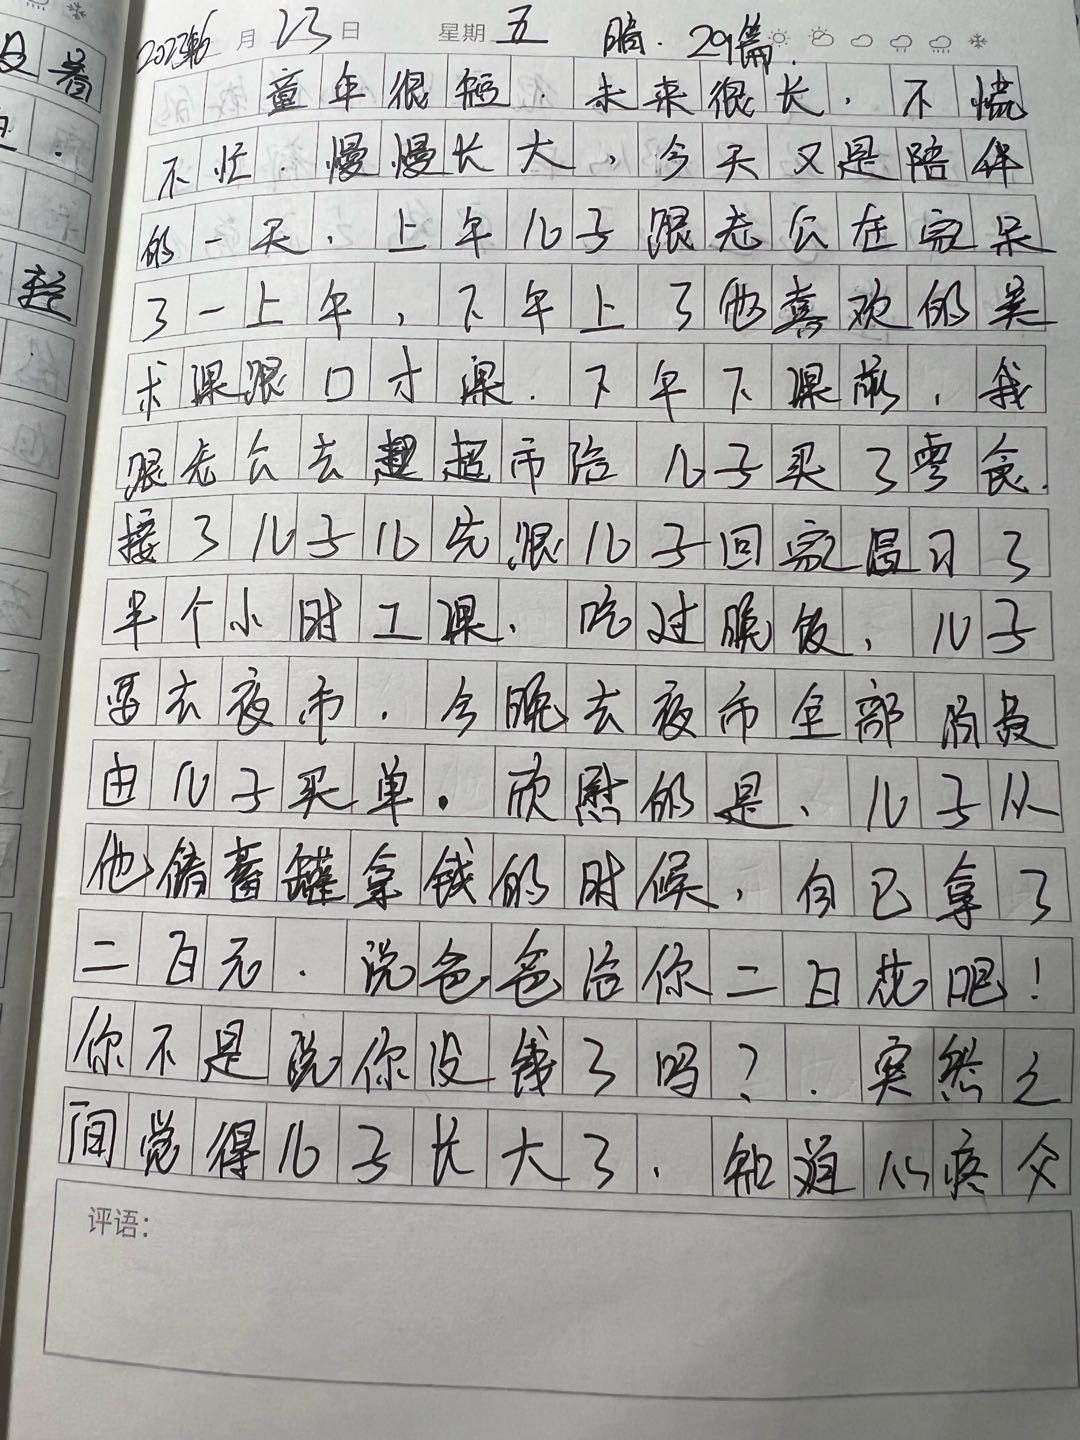 2023年6月23日 星期五 晴. 29篇.
童年很短.未来很长,不慌
不忙.慢慢长大,今天又是陪伴
的一天,上午儿子跟老公在家呆
了一上午,下午上了他喜欢的美
术课跟口才课.下午下课前,我
跟老公去超超市给儿子买了零食.
接了儿子儿先跟儿子回家温习了
半个小时工课.吃过晚饭,儿子
要去夜市.今晚去夜市全部消费
由儿子买单.欣慰的是、儿子从
他储蓄罐拿钱的时候,自己拿了
二百元.说爸爸给你二百花吧!
你不是说你没钱了吗?.突然之
间觉得儿子长大了.知道心疼父
评语: